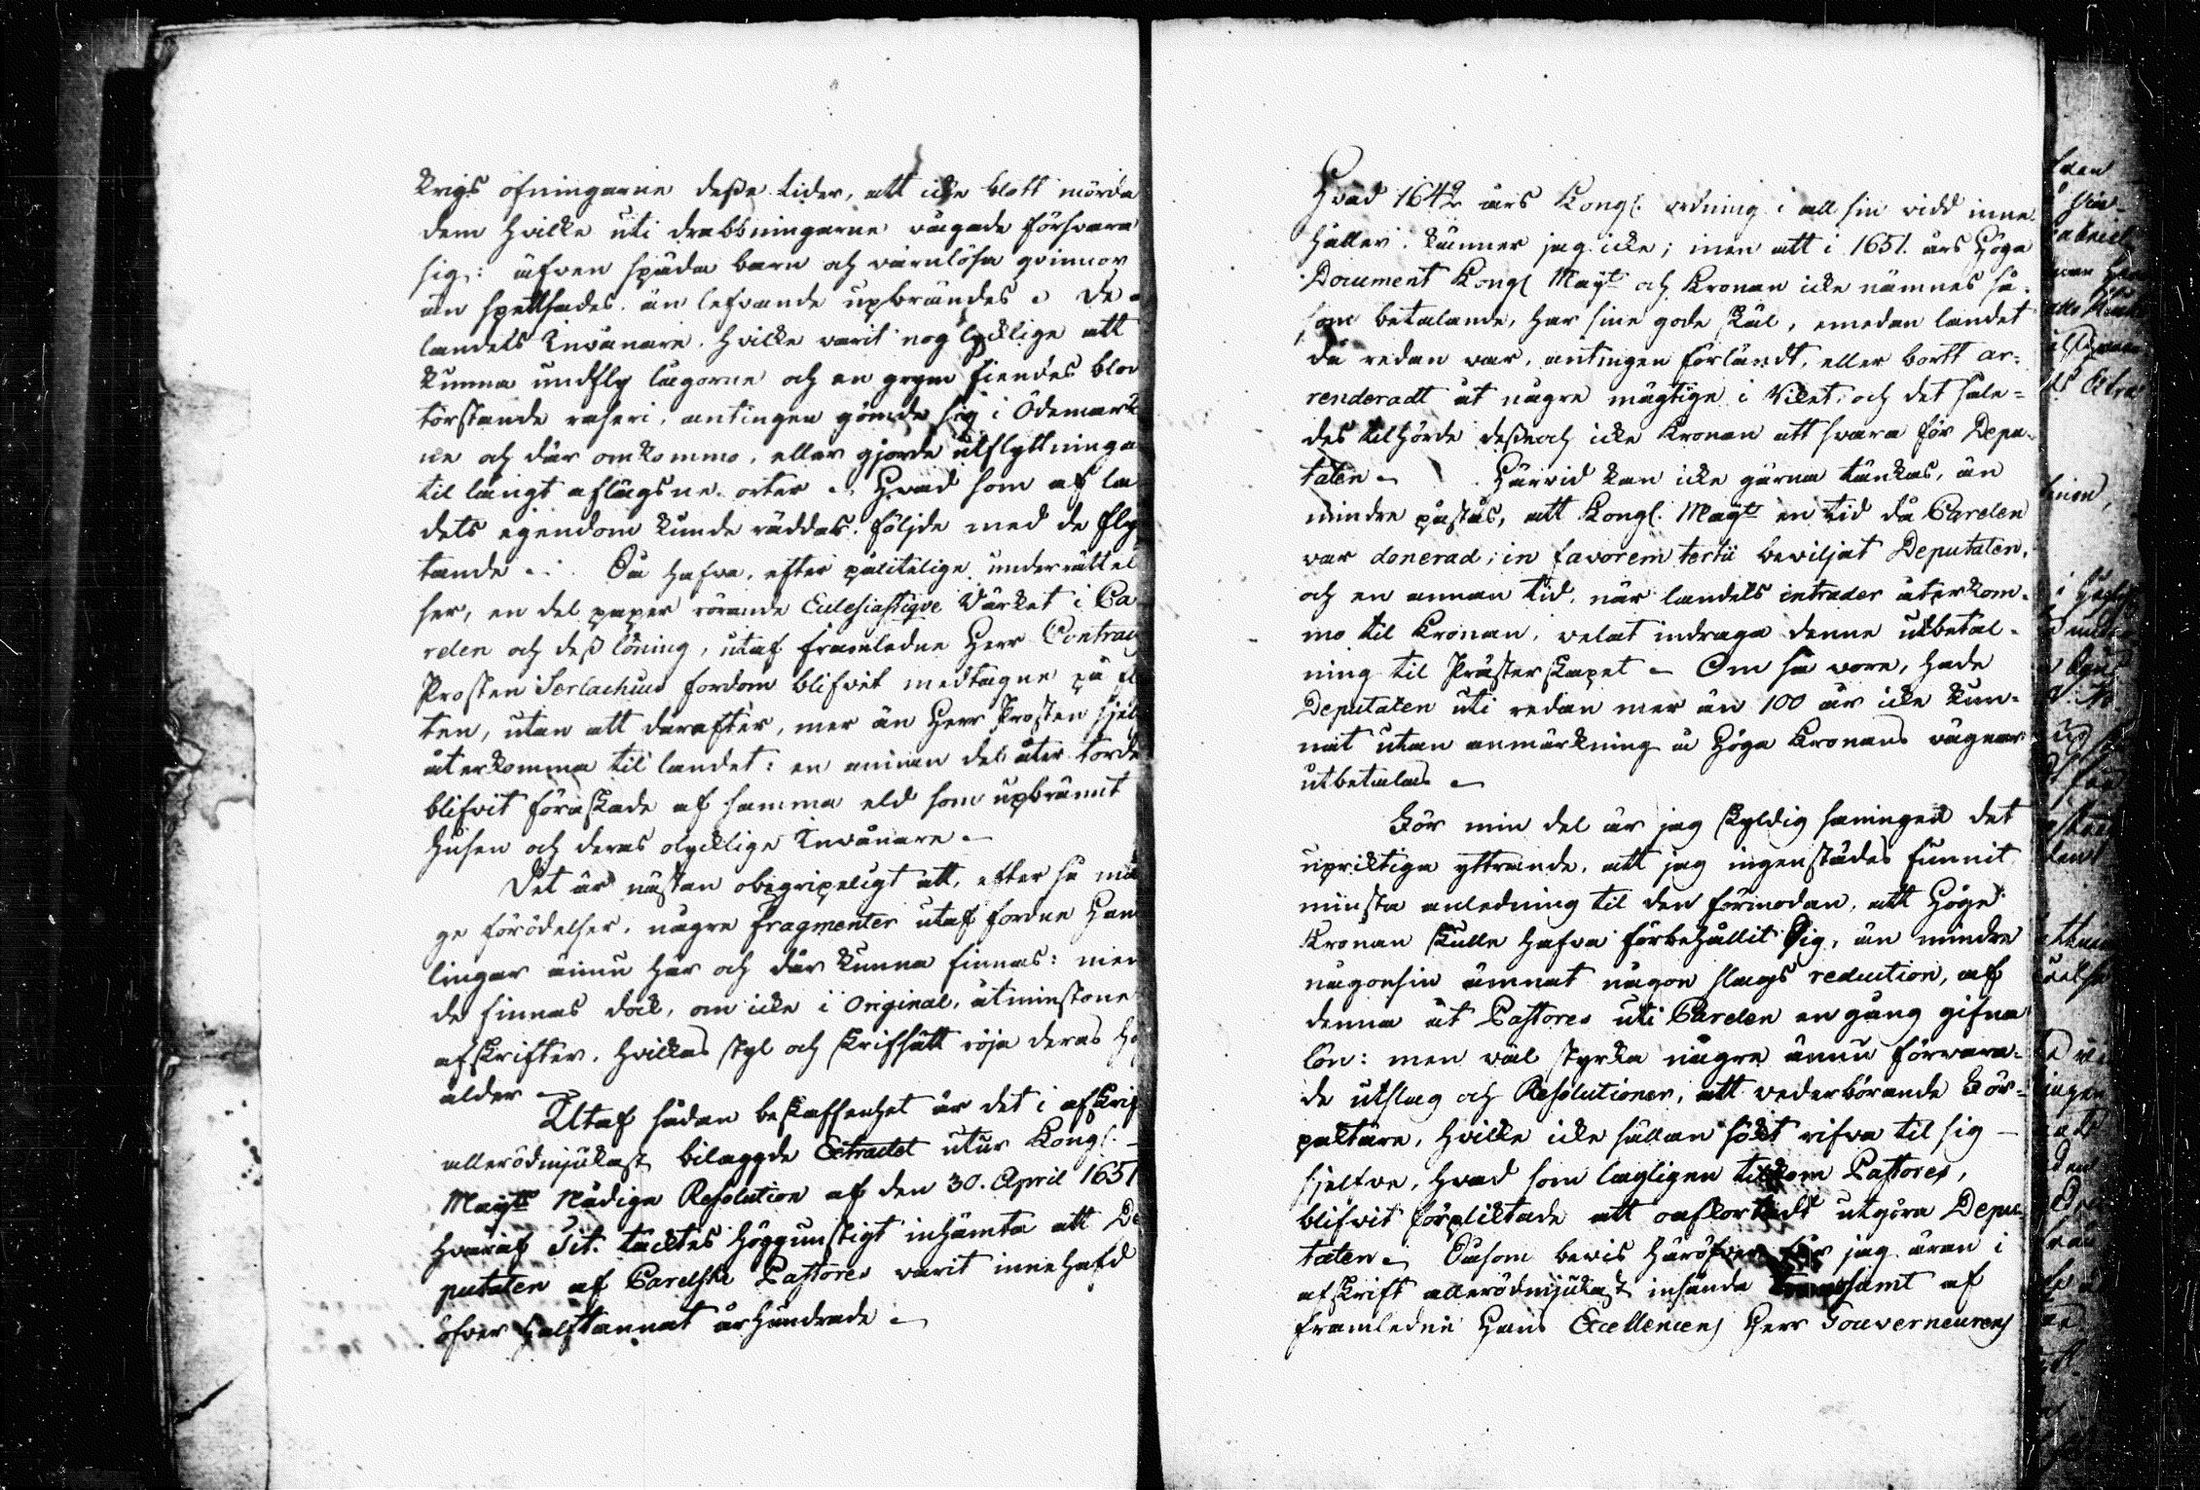 Krigs öfningarne desse tider, att icke blott mörda
dem hvilke uti drabbningarne vågade försvara
sig: äfven späda barn och värnlösa qvinnor
än spettsades, än lefvande upbrändes. De
landets Invånare, hvilke varit nog lycklige att
kunna undfly lågorne och en grym fiendes blod
törstande raseri, antingen gömde sig i Ödemark
ne och där omkommo, eller gjorde utflyttninga
til långt aflägsne orter. Hvad som af la
dets egendom kunde räddas, följde med de fly
tande. Så hafva, efter pålitelige underrättel
ser, en del paper rörande Eclesiastique Värket i Ca
relen och dess löning, utaf framledne Herr Contract
Prosten Serlachius fordom blifvit medtagne på fl
ten, utan att därefter, mer än Herr Prosten sjelf
återkomma til landet: en annan del åter torde
blifvit föraskade af samma eld som upbränt
Husen och deras olycklige Invånare.
Det är nästan obegripeligt att, efter så mån
ge förödelser, några fragmenter utaf fordne Han
lingar ännu här och där kunna finnas: men
de finnas dock, om icke i Original, åtminstone
afskrifter, hvilkas styl och skrifsätt röja deras hö
ålder
Utaf sådan beskaffenhet är det i afskrif
allerödmjukast bilaggde Extractet utur Kongl.
Mayts Nådiga Resolution af den 30. April 1651
hvaraf Tit. täcktes höggunstigt inhämta att De
putaten af Carelske Pastores varit innehafd
öfver halftannat århundrade.
Hvad 1642 års Kongl. ordning i all sin vidd inne
håller, känner jag icke; men att i 1651. års Höga
Document Kongl Mayt och Kronan icke nämnes så-
som betalande, har sine gode skäl, emedan landet
då redan var, antingen förlänt, eller bortt ar-
renderadt åt någre mägtige i Riket, och det såle-
des tilhörde dess och icke Kronan att svara för Depu-
taten. Härvid kan icke gärna tänkas, än
mindre påstås, att Kongl. Mayt en tid då Carelen
var donerad, in favorem tertii beviljat Deputaten,
och en annan tid, när landets intrader återkom-
mo til Kronan, velat indraga denne utbetal-
ning til Prästerskapet. Om så vore, hade
Deputaten uti redan mer än 100 år icke kun-
nat utan anmärkning å Höga Kronans vägnar
utbetalas.
För min del är jag skyldig sanningen det
upriktiga yttrande, att jag ingenstädes funnit
minsta anledning til den förmodan, att Höga
Kronan skulle hafva förbehållit Sig, än mindre
någonsin ämnat någon slags reduction, af
denna åt Pastores uti Carelen en gång gifna
lön: men väl styrka någre ännu förvara-
de utslag och Resolutioner, att vederbörande För-
paktare, hvilke icke sällan sökt rifva til sig
sjelfve, hvad som lagligen tilkom Pastores,
blifvit förpliktade att oafkortadt utgöra Depu-
taten. Såsom bevis häröfver får jag äran i
afskrift allerödmjukast insända samt af
framledne Hans Excellences Herr Gouverneurens